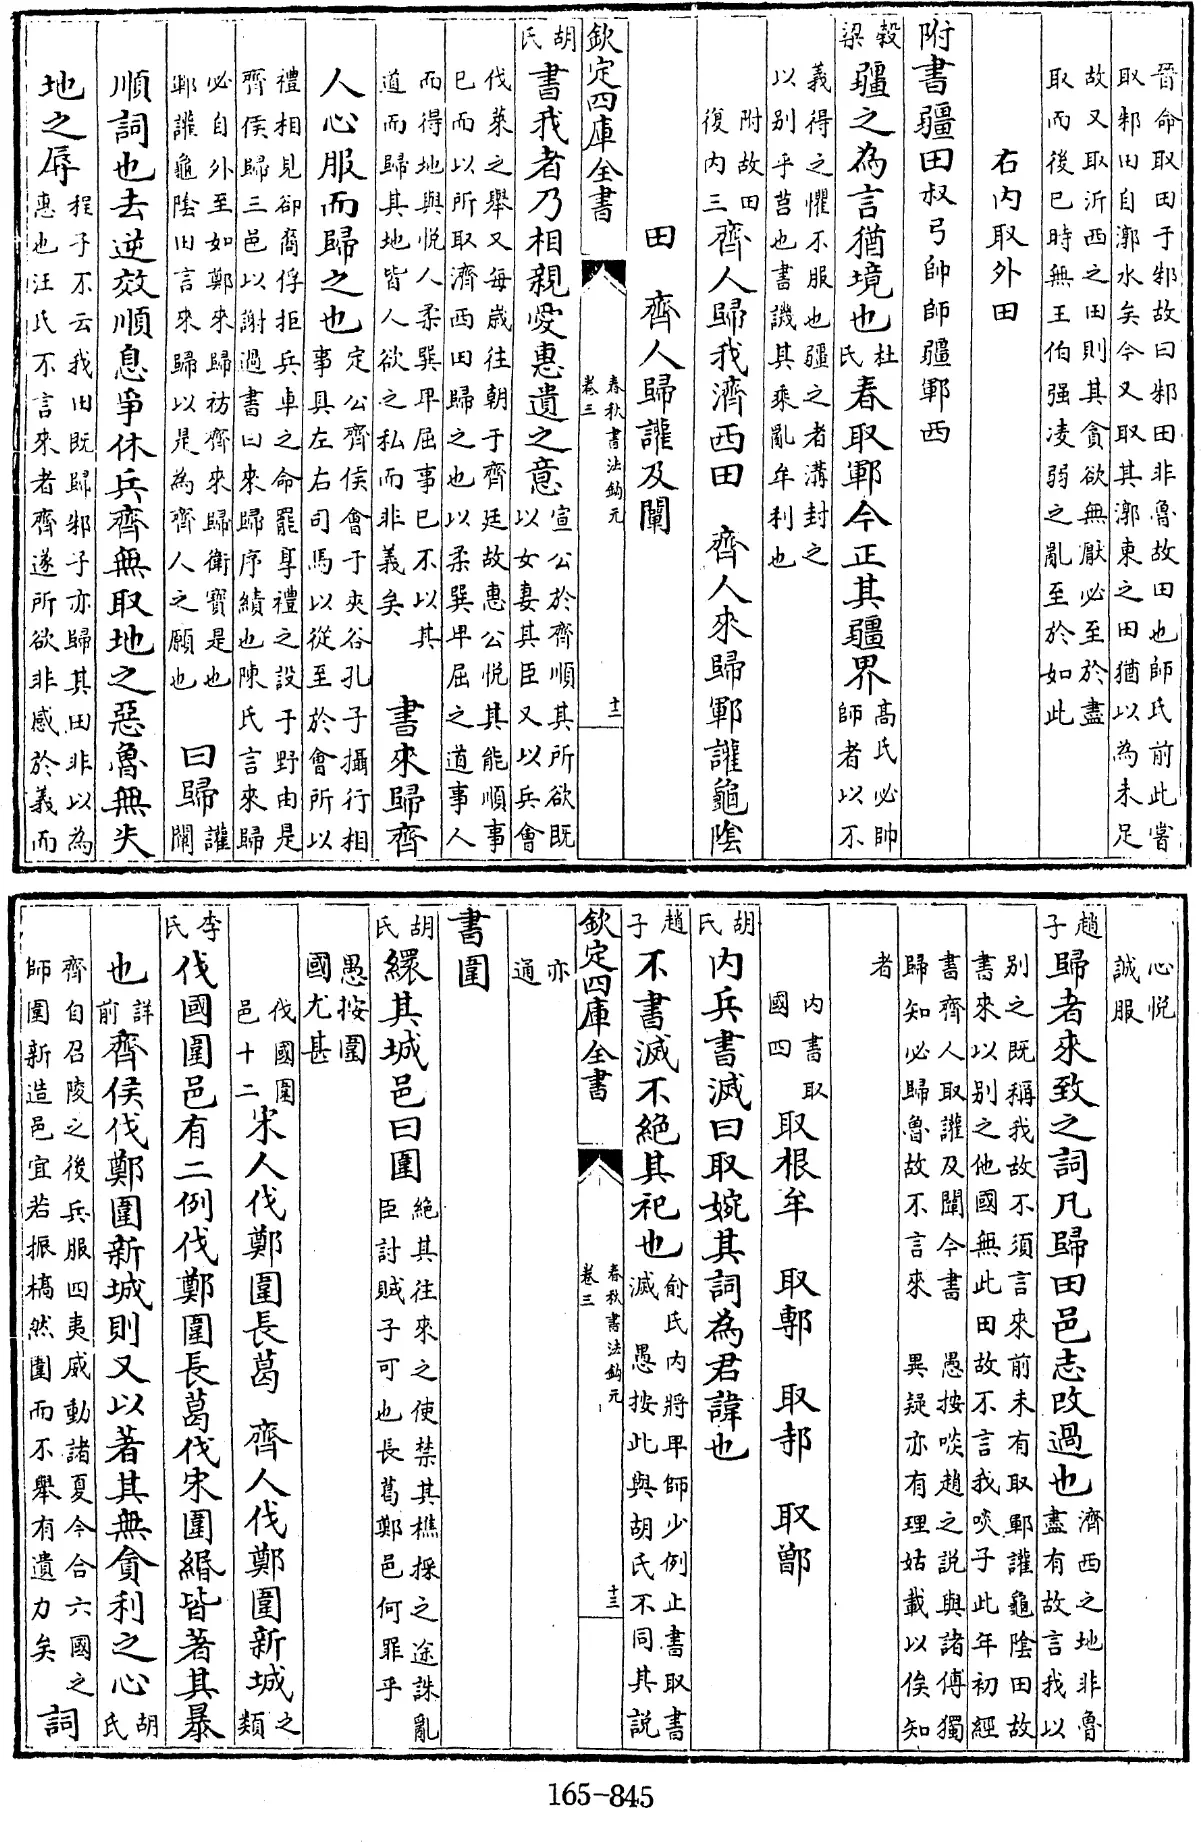 晉命取田于邾故曰邾田非魯故田也師氏前此嘗
取邾田自漷水矣今又取其漷東之田猶以為未足
故又取沂西之田則其貪欲無厭必至於盡
取而後已時無王伯强凌弱之亂至於如此
右内取外田
附書疆田叔弓帥師疆鄆西
榖梁疆之為言猶境也杜氏春取鄆今正其疆界高氏必帥師者以不
義得之懼不服也疆之者溝封之
以别乎莒也書譏其乘亂牟利也
附故田復内三齊人歸我濟西田 齊人來歸鄆讙龜陰
田 齊人歸讙及闡
欽定四庫全書 春秋書法鈎元 卷三 十二
胡氏書我者乃相親愛惠遺之意宣公於齊順其所欲既以女妻其臣又以兵會
伐萊之舉又每歲往朝于齊廷故惠公悅其能順事
已而以所取濟西田歸之也以柔巽卑屈之道事人
而得地與悅人柔巽卑屈事已不以其道而歸其地皆人欲之私而非義矣 書來歸齊
人心服而歸之也定公齊侯會于夾谷孔子攝行相事具左右司馬以從至於會所以
禮相見卻裔俘拒兵車之命罷享禮之設于野由是
齊侯歸三邑以謝過書曰來歸序績也陳氏言來歸
必自外至如鄭來歸祊齊來歸衛寶是也鄆讙龜陰田言來歸以是為齊人之願也 曰歸讙闡
順詞也去逆效順息爭休兵齊無取地之惡魯無失
地之辱程子不云我田既歸邾子亦歸其田非以為惠也汪氏不言來者齊遂所欲非感於義而
心悦誠服
趙子歸者來致之詞凡歸田邑志改過也濟西之地非魯盡有故言我以
别之既稱我故不須言來前未有取鄆讙龜陰田故
書來以别之他國無此田故不言我啖子此年初經
書齊人取讙及闡今書歸知必歸魯故不言來 愚按啖趙之說與諸傅獨異疑亦有理姑載以俟知
者
内書取國四取根牟 取鄟 取邿 取鄫
胡氏内兵書滅曰取婉其詞為君諱也
趙子不書滅不絕其祀也俞氏内將卑師少例止書取書滅 愚按此與胡氏不同其説
欽定四庫全書 春秋書法鈎元 卷三 十三
亦通
書圍
胡氏繯其城邑曰圍絕其往來之使禁其樵採之途誅亂臣討賊子可也長葛鄭邑何罪乎
愚按圍國尤甚
伐國圍邑十二宋人伐鄭圍長葛 齊人伐鄭圍新城之類
李氏伐國圍邑有二例伐鄭圍長葛伐宋圍緡皆著其暴
也詳前齊侯伐鄭圍新城則又以著其無貪利之心胡氏
齊自召陵之後兵服四夷威動諸夏今合六國之師圍新造邑宜若振槁然圍而不舉有遺力矣 詞
165-845